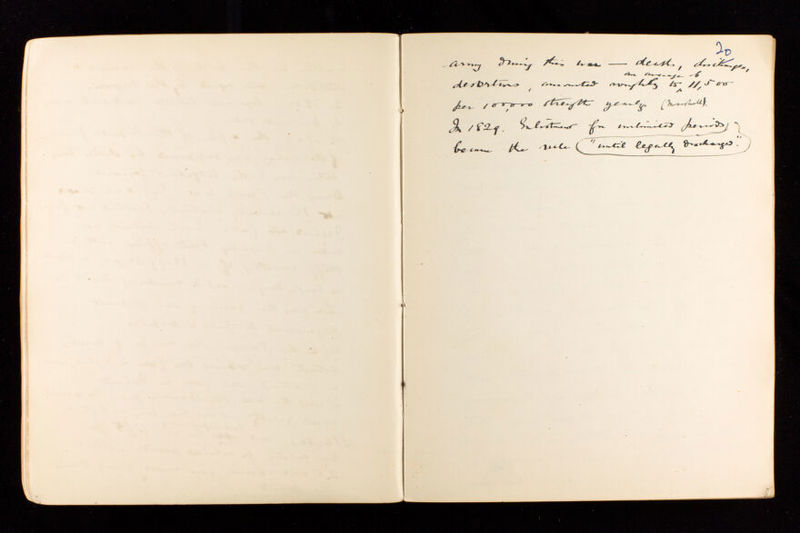 20
army during this war — deaths, discharges,
desertions, amounted roughly to an average of 11,500
per 100,000 strength yearly (Marshall).
In 1829. Enlistment for unlimited periods
became the rule "until legally discharged".